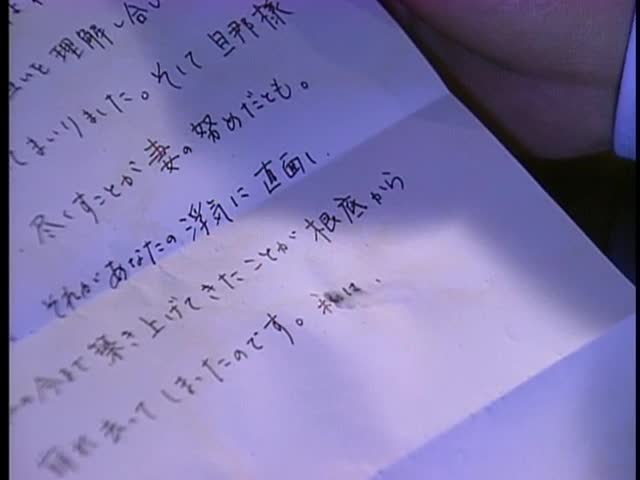 いを理解し合い
てまいりました。そして旦那様
尽くすことが妻の努めだとも。
それがあなたの浮気に直面し、
今まで築き上げてきたことが根底から
崩れ去ってしまったのです。私は、